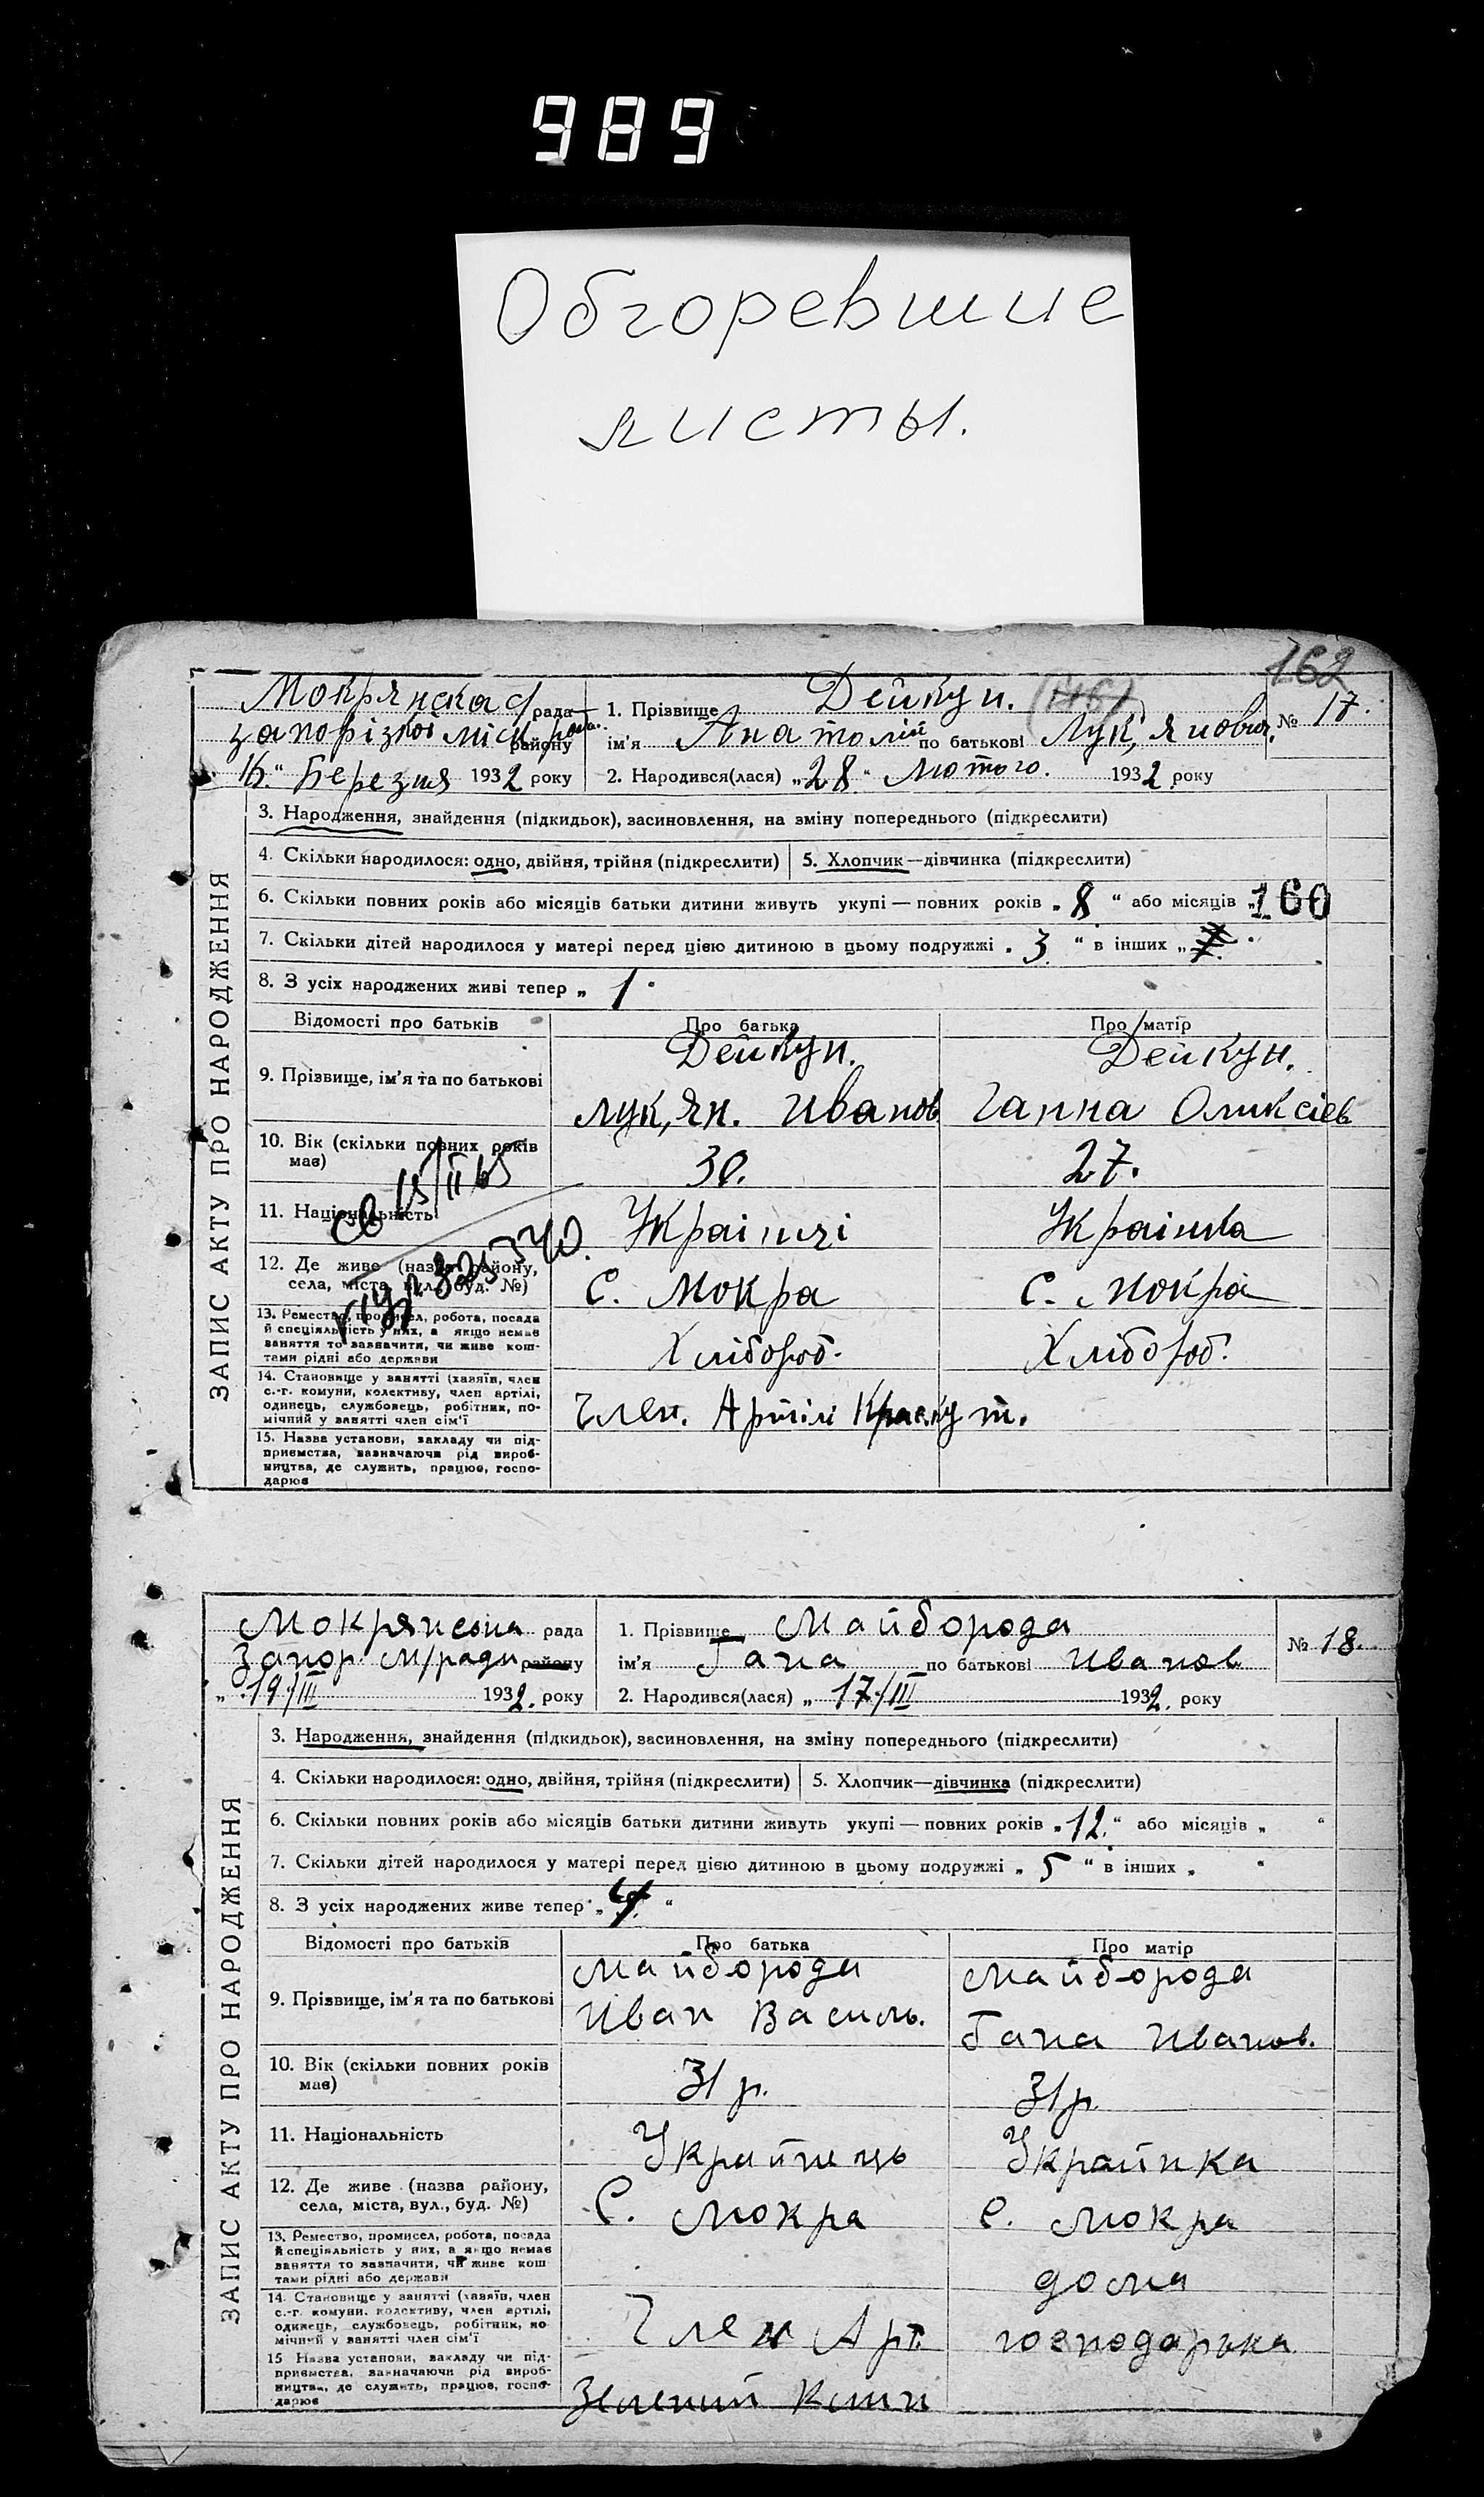 989
Обгоревшие
листы.
162
Мокрянска с/рада
запорізької міск. ради. району
16 „ Березня 1932 року
1. Прізвище Дейкун. (146)
ім'я Анатолій по батькові Лук,янович.
2. Народився(лася) „28“ Лютого. 1932 року
№ 17.
ЗАПИС АКТУ ПРО НАРОДЖЕННЯ
3. Народження, знайдення (підкидьок), засиновлення, на зміну попереднього (підкреслити)
4. Скільки народилося: одно, двійня, трійня (підкреслити)
5. Хлопчик—дівчинка (підкреслити)
6. Скільки повних років або місяців батьки дитини живуть укупі — повних років „ 8 “ або місяців „
160
7. Скільки дітей народилося у матері перед цією дитиною в цьому подружжі „ 3. “ в інших „
8. З усіх народжених живі тепер „ 1.
Відомості про батьків
Про батька
Про матір
9. Прізвище, ім'я та по батькові
Дейкун.
Лук,ян. Иванов
Дейкун.
Ганна Оликсіев
10. Вік (скільки повних років має)
30.
27.
св 15/II 65
11. Національність
Українці
Українка
12. Де живе (назва району, села, міста, вул., буд. №)
С. Мокра
С. Мокра
13. Ремество, промисел, робота, посада й спеціяльність у них, а якщо немає заняття то зазначити, чи живе коштами рідні або держави
Хлібороб.
Хлібороб.
14. Становище у занятті (хазяїн, член с.-г. комуни, колективу, член артілі, одинець, службовець, робітник, помічний у занятті член сім'ї
Член. Артілі
15. Назва установи, закладу чи підприємства, зазначаючи рід виробництва, де служить, працює, господарює
Мокрянська рада
Запор м/ради району
„ 19/III 1932. року
1. Прізвище Майборода
ім'я Гана по батькові Иванов
2. Народився(лася) „ 17/III 1932. року
№ 18.
ЗАПИС АКТУ ПРО НАРОДЖЕННЯ
3. Народження, знайдення (підкидьок), засиновлення, на зміну попереднього (підкреслити)
4. Скільки народилося: одно, двійня, трійня (підкреслити)
5. Хлопчик—дівчинка (підкреслити)
6. Скільки повних років або місяців батьки дитини живуть укупі — повних років „12.“ або місяців „ “
7. Скільки дітей народилося у матері перед цією дитиною в цьому подружжі „ 5 “ в інших „ “
8. З усіх народжених живе тепер „ 4. “
Відомості про батьків
Про батька
Про матір
9. Прізвище, ім'я та по батькові
Майборода
Иван Василь.
Майборода
Гана Иванов.
10. Вік (скільки повних років має)
31 р.
31 р.
11. Національність
Украйнець
Украйнка
12. Де живе (назва району, села, міста, вул., буд. №)
С. Мокра
С. Мокра
13. Ремество, промисел, робота, посада й спеціяльність у них, а якщо немає заняття то зазначити, чи живе коштами рідні або держави
дома
14. Становище у занятті (хазяїн, член с.-г. комуни, колективу, член артілі, одинець, службовець, робітник, помічний у занятті член сім'ї
Член Арт.
господарька
15 Назва установи, закладу чи підприємства, зазначаючи рід виробництва, де служить, працює, господарює
Зелений